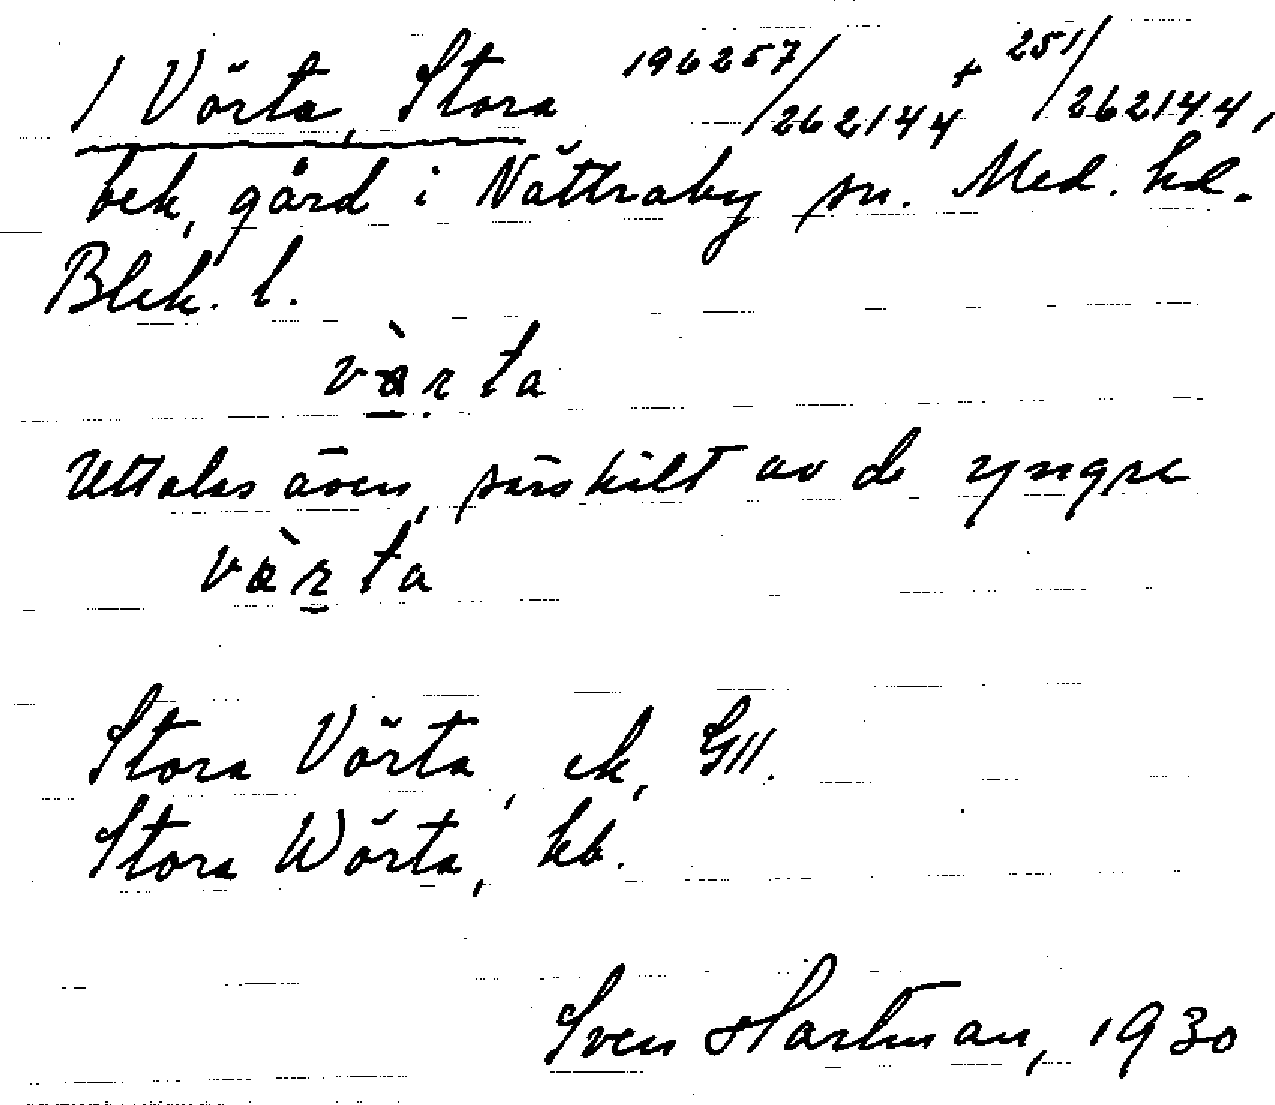 1 Vörta, Stora 196257/262144 + 251/262144,
bek, gård i Nättraby sn. Med. hd.
Blek. l.
vàrta
Uttalas även, särskilt av de yngre
vàrta
Stora Vörta, ek, GII.
Stora Wörta, kb.
Sven Hartman, 1930